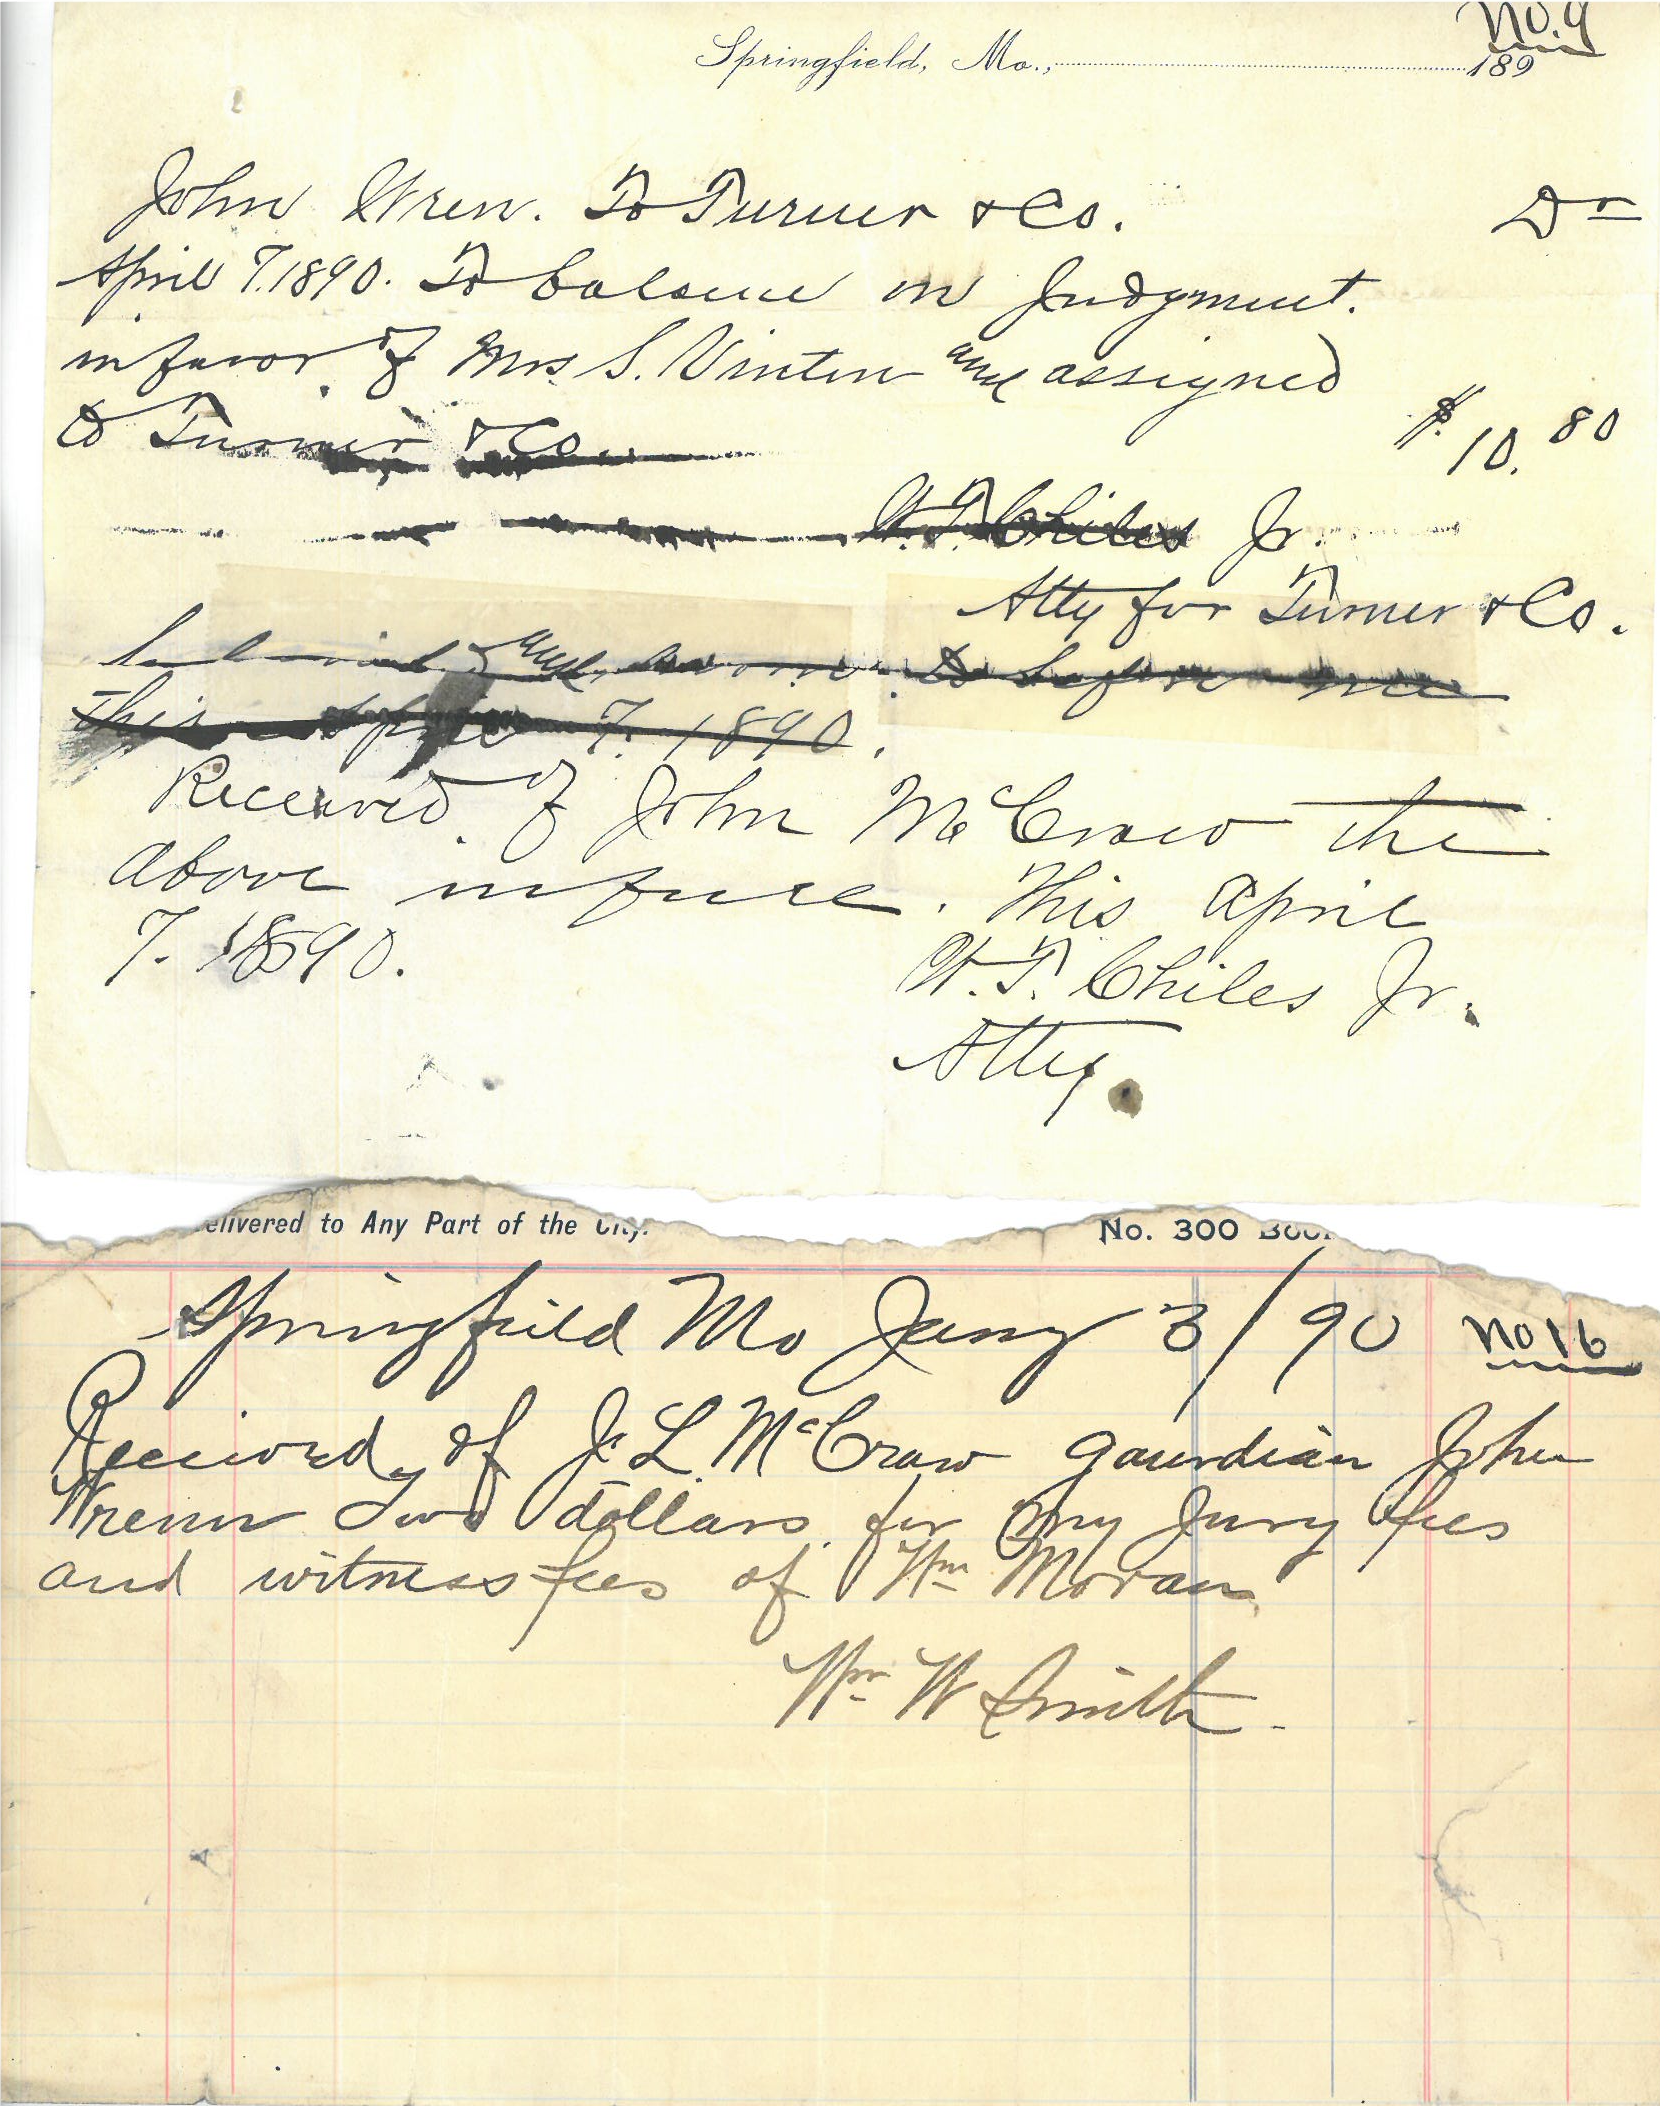 No. 9
Springfield, Mo., 189
John Wren. To Turner & Co. Dr
April 7. 1890. To balance on Judgment.
in favor of Mrs S. Vinten and assigned
to Turner & Co. $10.80
W. T. Chiles Jr.
Atty for Turner & Co.
and sworn to before me
this April 7. 1890.
Received of John McCraw the
above in full. This April
7. 1890.
W. T. Chiles Jr.
Atty.
elivered to Any Part of the City. No. 300 Boo
Springfield Mo Jany 3/90 No 16
Received of J. L. McCraw gaurdian John
Wrenn Two dollars for my Jury fees
and witness fees of Wm Moran
Wm W Smith.